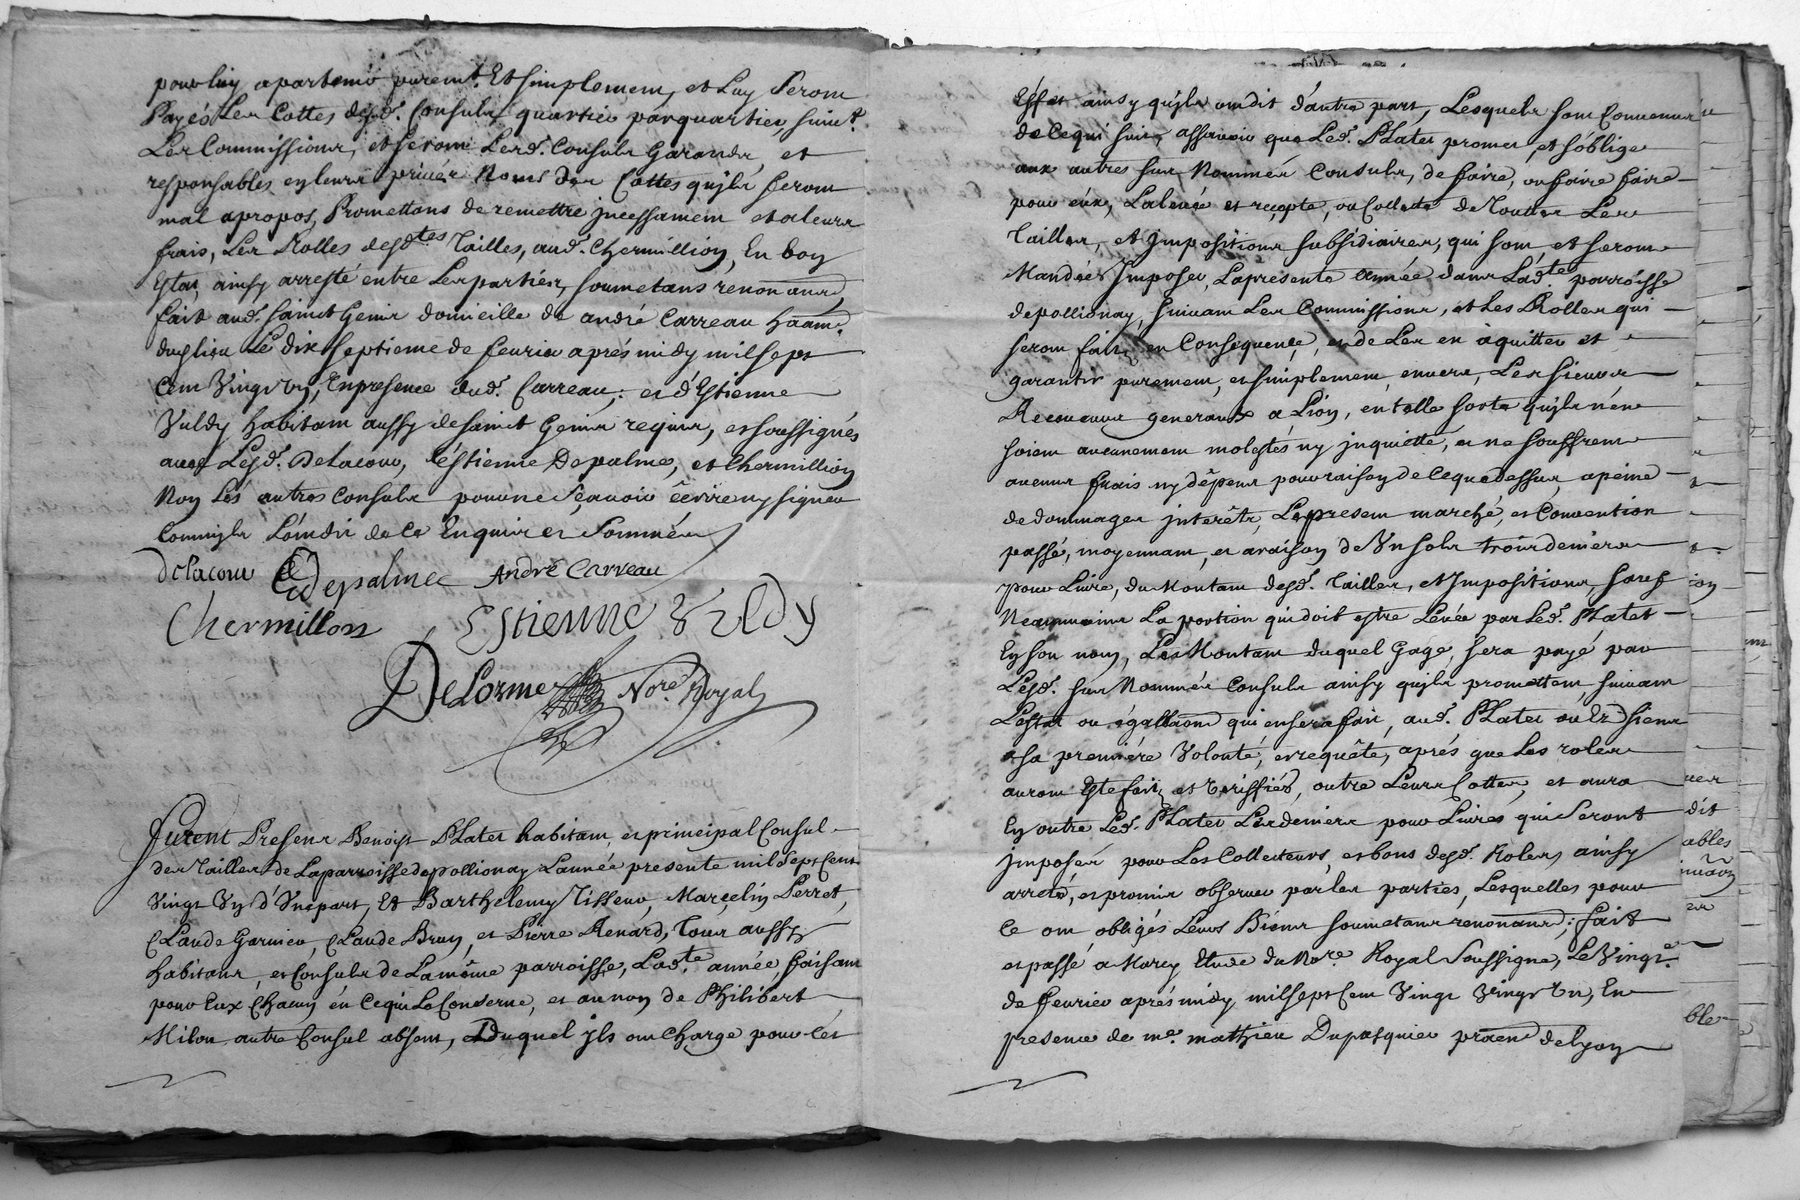 pour luy apartenir purem.t Et simplement, et Luy Seront
Payés Les Cottes desd. Consuls quartier par quartier, suiv.t
Les Commissions, et seront Lesd. Consuls Garands, et
responsables en leurs privés Noms des Cottes qu'ils feront
mal apropos, Promettans de remettre incessament et a leurs
frais, Les Rolles desd.tes Tailles, aud. Chermillion, En bon
Estat, ainsy arresté entre Les parties, soumetans renonceans,
fait aud. Sainct Genis domicille de andré Carreau haant.
dud lieu Le dix septieme de fevrier aprés midy mil sept
Cent Vingt Un, En presence dud. Carreau, et d'Estienne
Vuldy habitant aussy de Sainct Genis requis, et soussignés
avec Lesd. Delacour, Estienne Depalme, et Chermillion
Non Les autres Consuls pour ne Sçavoir écrire ny signer
Comm'ils L'ont dit de ce Enquis et Sommés
Delacour Edepalme André Carreau
Chermillon Estienne Vuldy
DeLorme No.re Royal
Furent Presens Benoist Plater habitant, et principal Consul
des Tailles de La parroisse de pollionay L'année presente mil Sept Cent
Vingt Un d'Une part, Et Barthelemy Tisseur, Marcelin Perret,
Claude Garnier, Claude Brun, et Pierre Renard, Tous aussy
habitans, et Consuls de La même parroisse, Lad.te année, faisant
pour Eux Chacun en Ce qui Le Conserne, et au nom de Philibert
Milon autre Consul absent, Duquel ils ont Charge pour cet
Effet ainsy qu'ils ont dit d'autre part, Lesquels sont Convenus
de Ce qui suit, assavoir que Led. Plater promet, et s'oblige
aux autres sus Nommés Consuls, de faire, ou faire faire
pour eux, La levée et recepte, ou Collecte de Toutes Les
Tailles, et Impositions subsidiaires, qui sont et seront
Mandées Imposer La presente année dans Lad.te parroisse
de pollionay, suivant Les Commissions, et Les Rolles qui
seront faits en Consequence, et de Les en âquitter et
garantir purement, et simplement, envers, Les sieurs
Receveurs generaux a Lion, en telle sorte qu'ils n'en
soient aucunement molestés ny inquiettés, et ne souffrent
aucuns frais ny dépens pour raison de Ce que Dessus, a peine
de dommages interêts, Le present marché, et Convention
passé, moyennant, et a raison de Un sols trois deniers
pour Livre, du Montant desd. Tailles, et Impositions, sauf
Neanmoins La portion qui doit estre Levée par Led. Plater
En son nom, Les Montant duquel Gage, sera payé par
Lesd. sus Nommés Consuls ainsy qu'ils promettent, suivant
L'estat ou égallaon qui en sera fait, aud. Plater ou Es siens
a sa premiére Volonté, et requête, aprés que Les roles
auront Esté faits et veriffiés, outre Leurs Cottes, et aura
En outre Led. Plater Les deniers pour Livres qui Seront
imposés pour Les Collecteurs, et bons desd. Roles, ainsy
arreté, et promis observer par les parties, Lesquelles pour
ce ont obligés Leurs Biens soumetans renonceans; fait
et passé a Morcy Etude du No.re Royal Soussigné, Le Vingt.e
de fevrier aprés midy, mil sept Cent Vingt Un, En
presence de m.e mathieu Dupasquier praen de Lyon